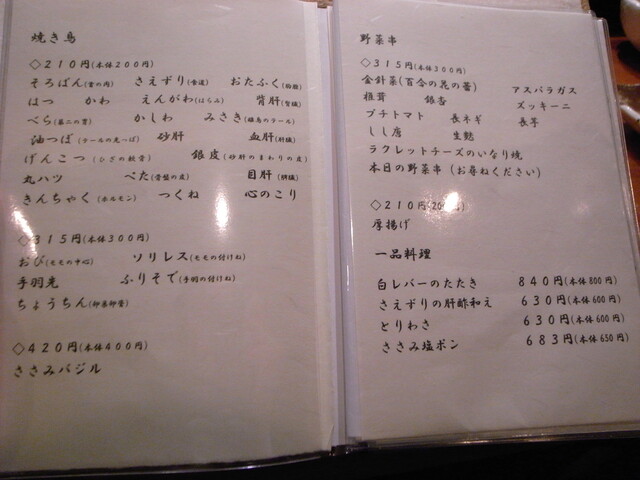 焼き鳥
◇210円(本体200円)
そろばん(首の肉) さえずり(食道) おたふく(胸腺)
はつ かわ えんがわ(はらみ) 背肝(腎臓)
べら かしわ みさき(雌鳥のテール)
油つぼ(テールの先っぽ) 砂肝 血肝(肝臓)
げんこつ(ひざの軟骨) 銀皮(砂肝のまわりの皮)
丸ハツ ぺた(背盤の皮) 目肝(脾臓)
きんちゃく(ホルモン) つくね 心のこり
◇315円(本体300円)
おび(ももの中心) ソリレス(ももの付けね)
手羽先 ふりそで(手羽の付けね)
ちょうちん(卵巣卵管)
◇420円(本体400円)
ささみバジル
野菜串
◇315円(本体300円)
金針菜(百合の花の蕾) アスパラガス
椎茸 銀杏 ズッキーニ
プチトマト 長ネギ 長芋
しし唐 生麩
ラクレットチーズのいなり焼
本日の野菜串(お尋ねください)
◇210円(200円)
厚揚げ
一品料理
白レバーのたたき 840円(本体800円)
さえずりの肝酢和え 630円(本体600円)
とりわさ 630円(本体600円)
ささみ塩ポン 683円(本体650円)